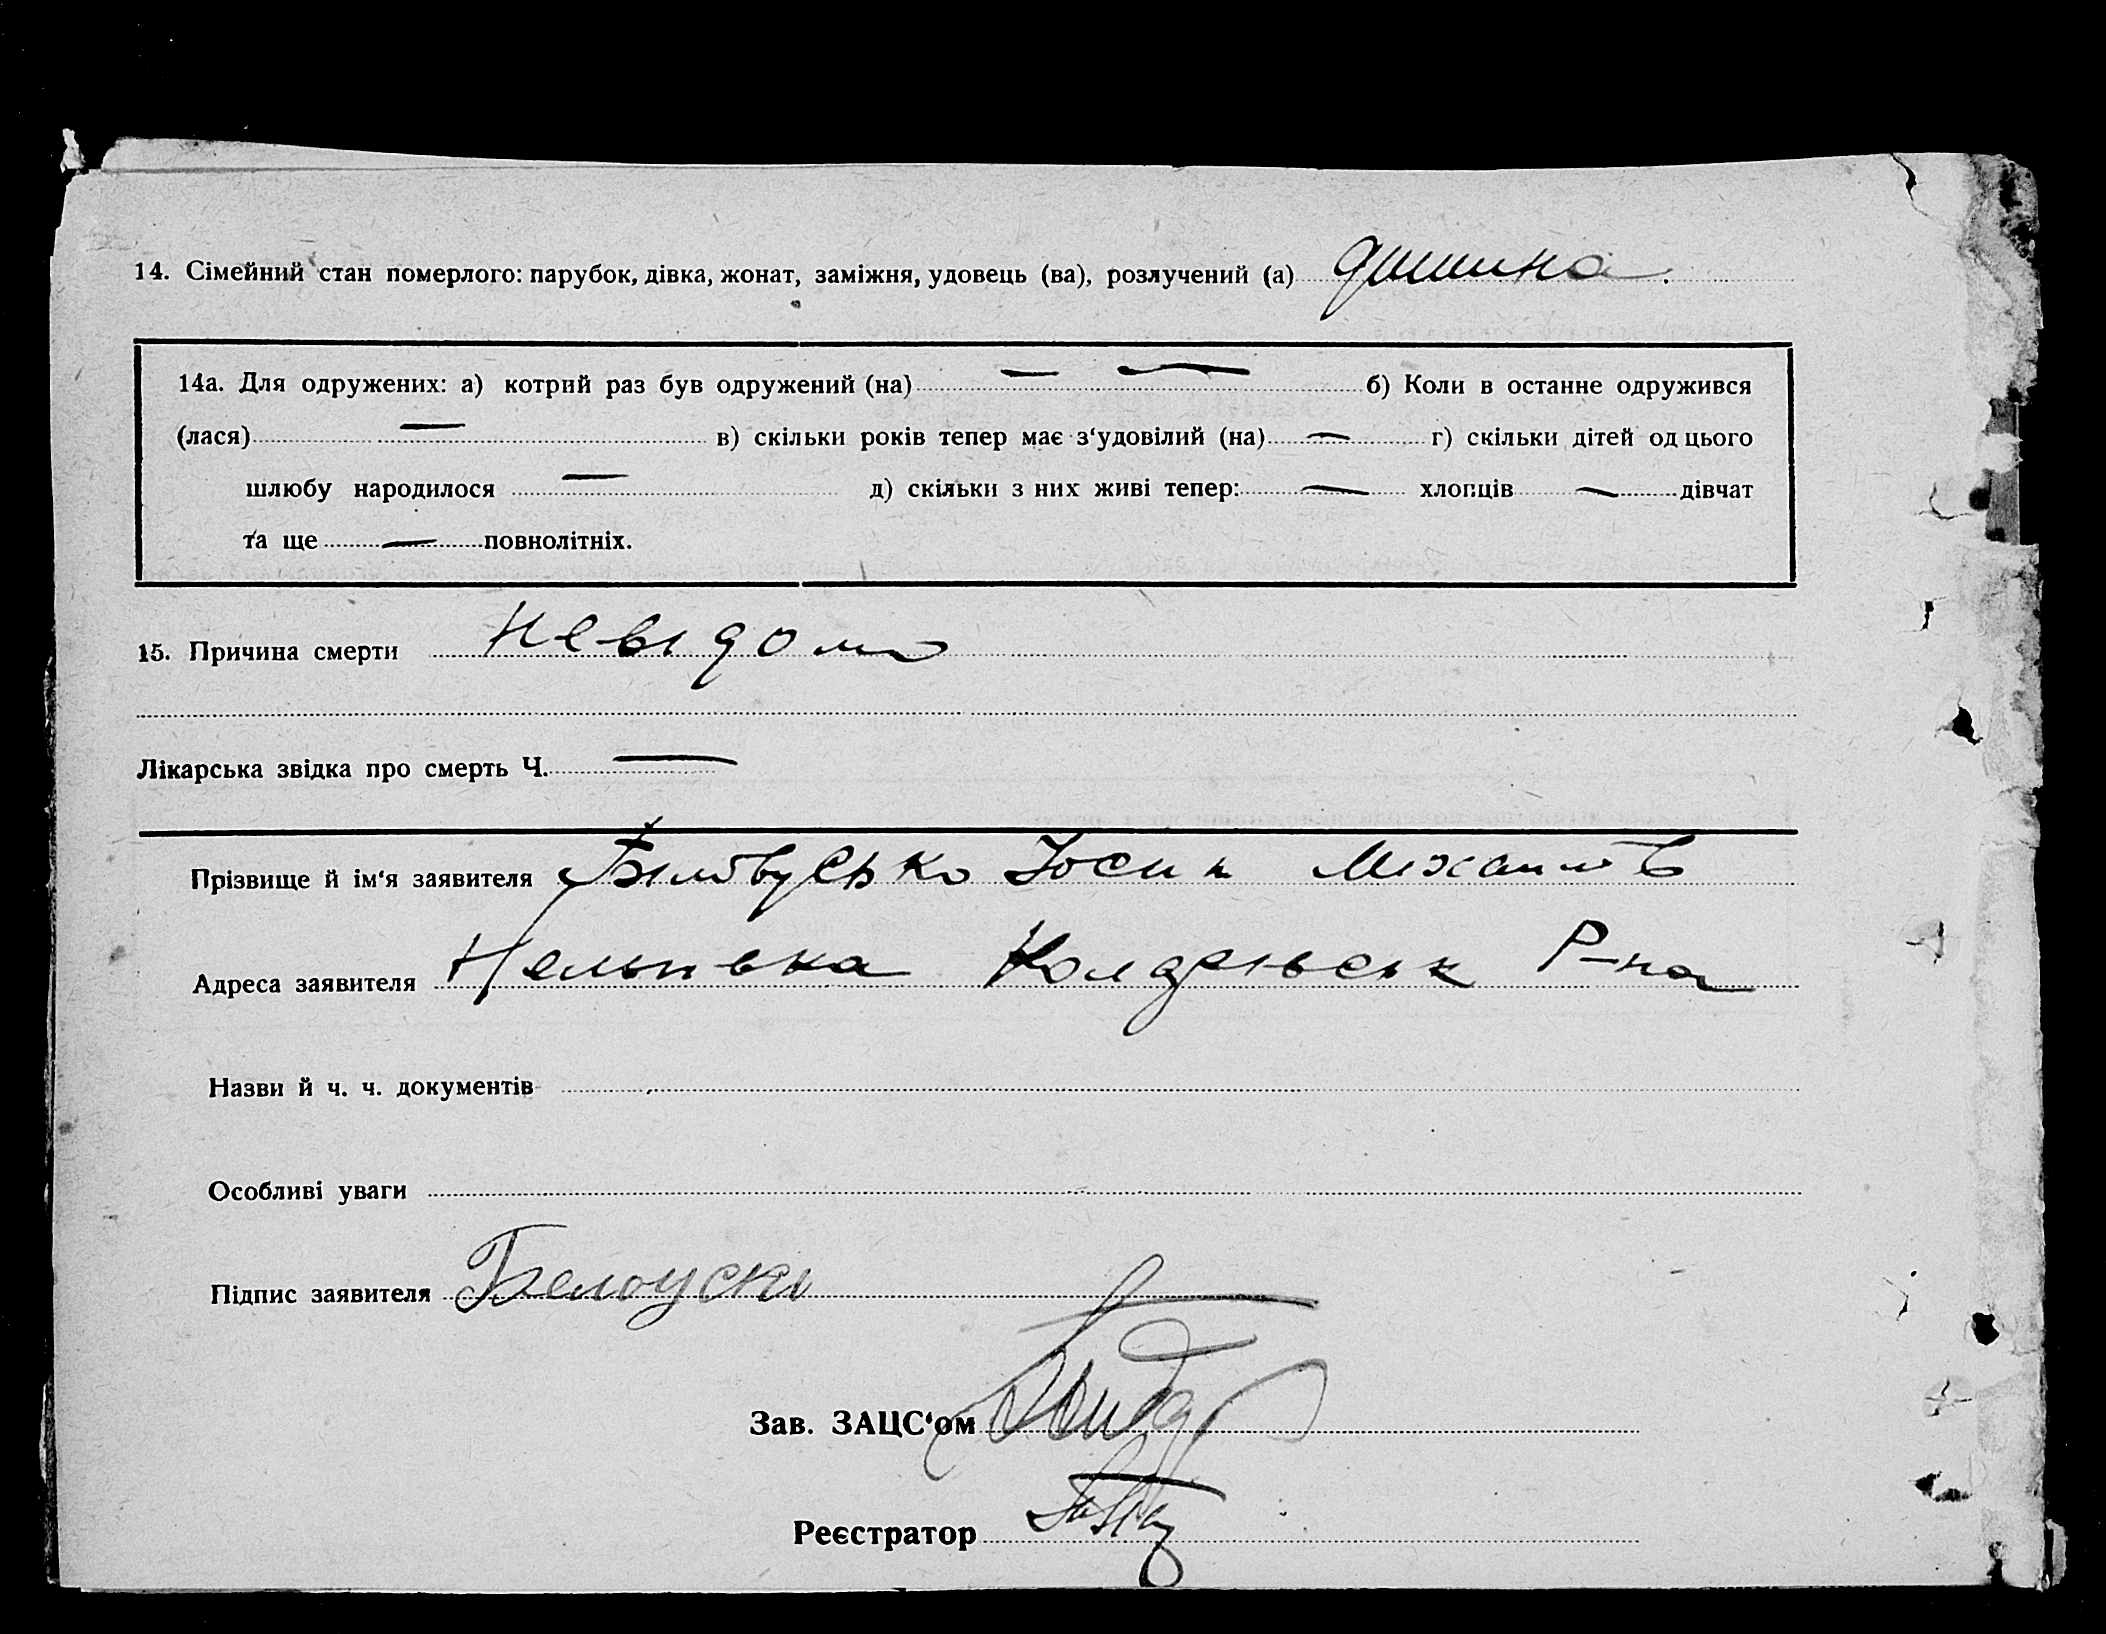 14. Сімейний стан померлого: парубок, дівка, жонат, заміжня, удовець (ва), розлучений (а) дитина.
14а. Для одружених: а) котрий раз був одружений (на) — — б) Коли в останне одружився
(лася) — в) скільки років тепер має з‘удовілий (на) — г) скільки дітей од цього
шлюбу народилося — д) скільки з них живі тепер: — хлопців — дівчат
та ще — повнолітніх.
15. Причина смерти невідома
Лікарська звідка про смерть Ч. —
Прізвище й ім‘я заявителя Юсип
Адреса заявителя Р-на
Назви й ч. ч. документів
Особливі уваги
Підпис заявителя Белоуско
Зав. ЗАЦС‘ом
Реєстратор